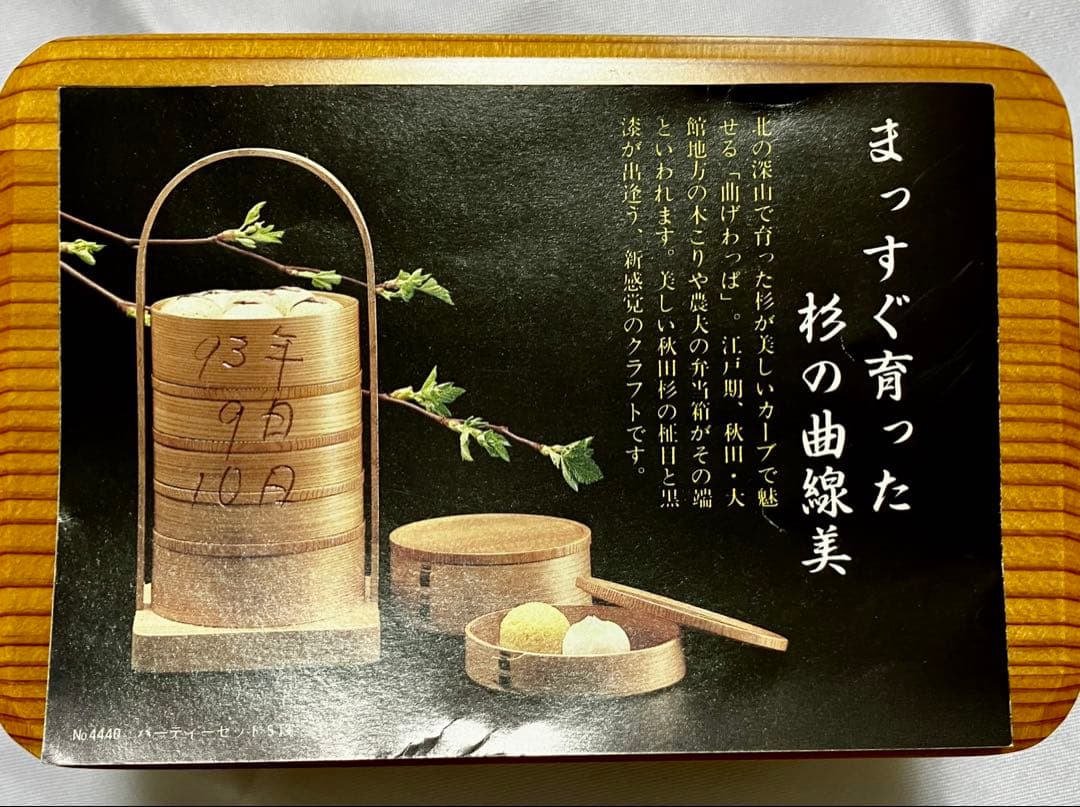 まっすぐ育った
杉の曲線美
北の深山で育った杉が美しいカーブで魅
せる「曲げわっぱ」。江戸期、秋田・大
館地方の木こりや農夫の弁当箱がその端
といわれます。美しい秋田杉の柾目と黒
漆が出逢う、新感覚のクラフトです。
93年
9日
10日
No4440 パーティーセット